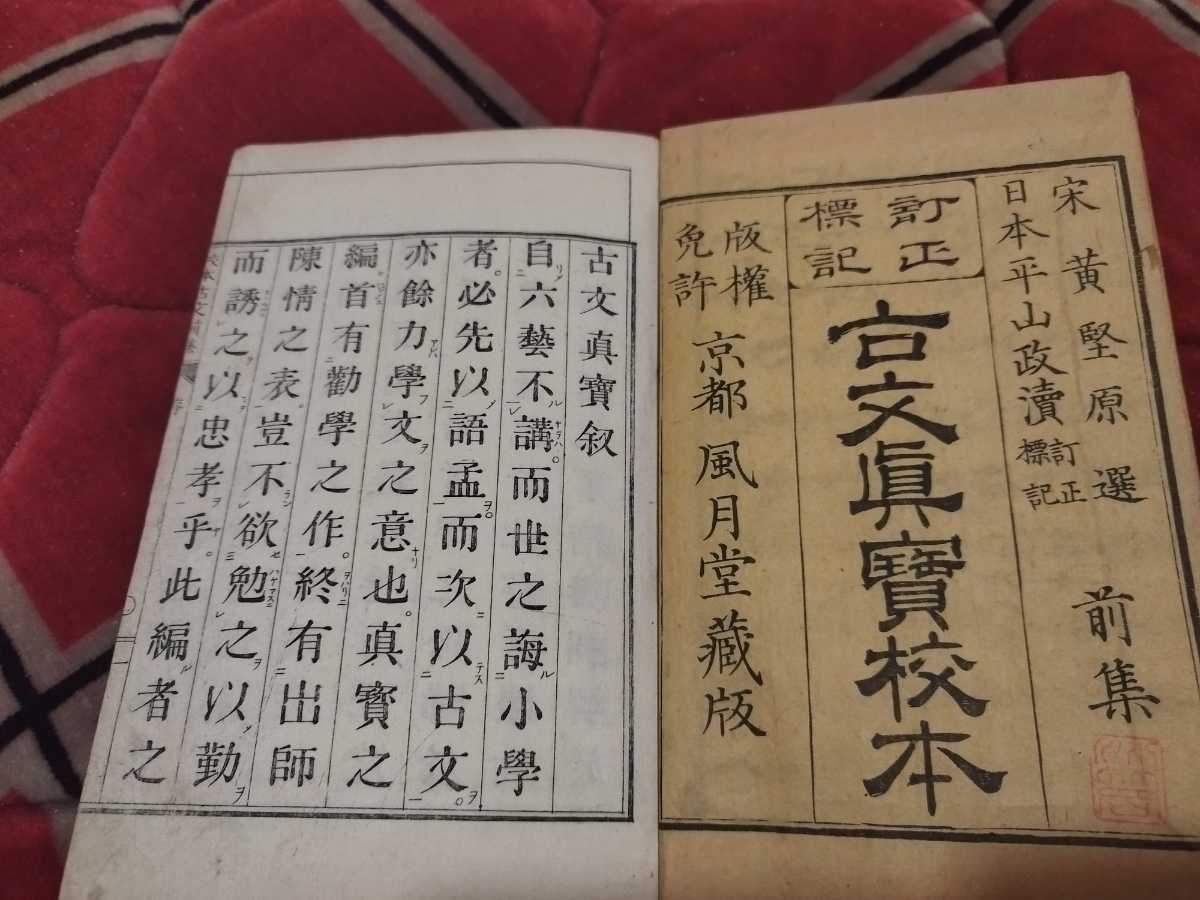 宋 黄堅原選 前集
日本平山政瀆 訂正標記
訂正標記
古文眞寶校本
版權免許 京都 風月堂藏版
古文真寶叙
自六藝不講而世之誨小學
者必先以語孟而次以古文
亦餘力學文之意也。真寳之
編首有勸學之作。終有出師
陳情之表。豈不欲勉之以勤
而誘之以忠孝乎。此編者之